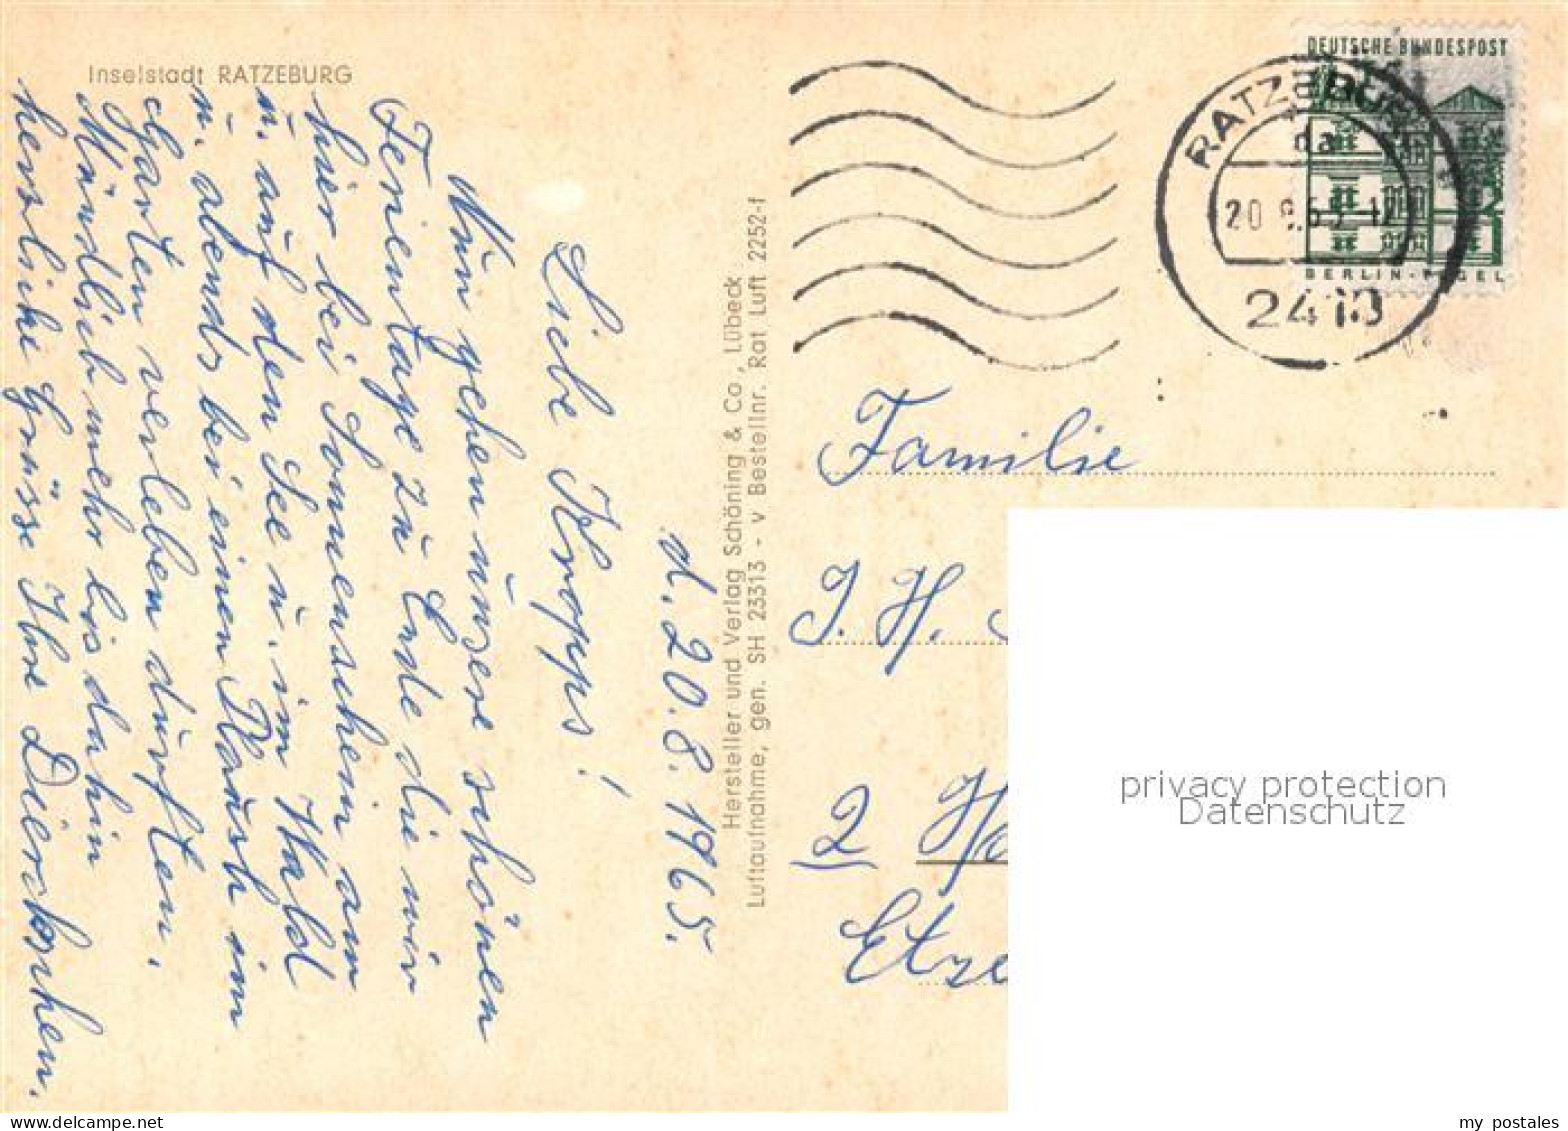 Inselstadt RATZEBURG
d. 20.8.1965.
Liebe Kropps!
Nun gehen unsere schönen
Ferientage zu Ende die wir
hier bei Sonnenschein am
u. auf dem See u. im Wald
u. abends bei einem Plausch im
Garten verleben durften.
Mündlich mehr bis dahin
herzliche Grüsse Ihre
Hersteller und Verlag Schöning & Co., Lübeck
Luftaufnahme, gen. SH 23313 - v Bestellnr. Rat Luft 2252-f
DEUTSCHE BUNDESPOST
BERLIN-TEGEL
RATZEBURG
da
2418
Familie
J. H.
2 Ha
Etze
privacy protection
Datenschutz
my postales